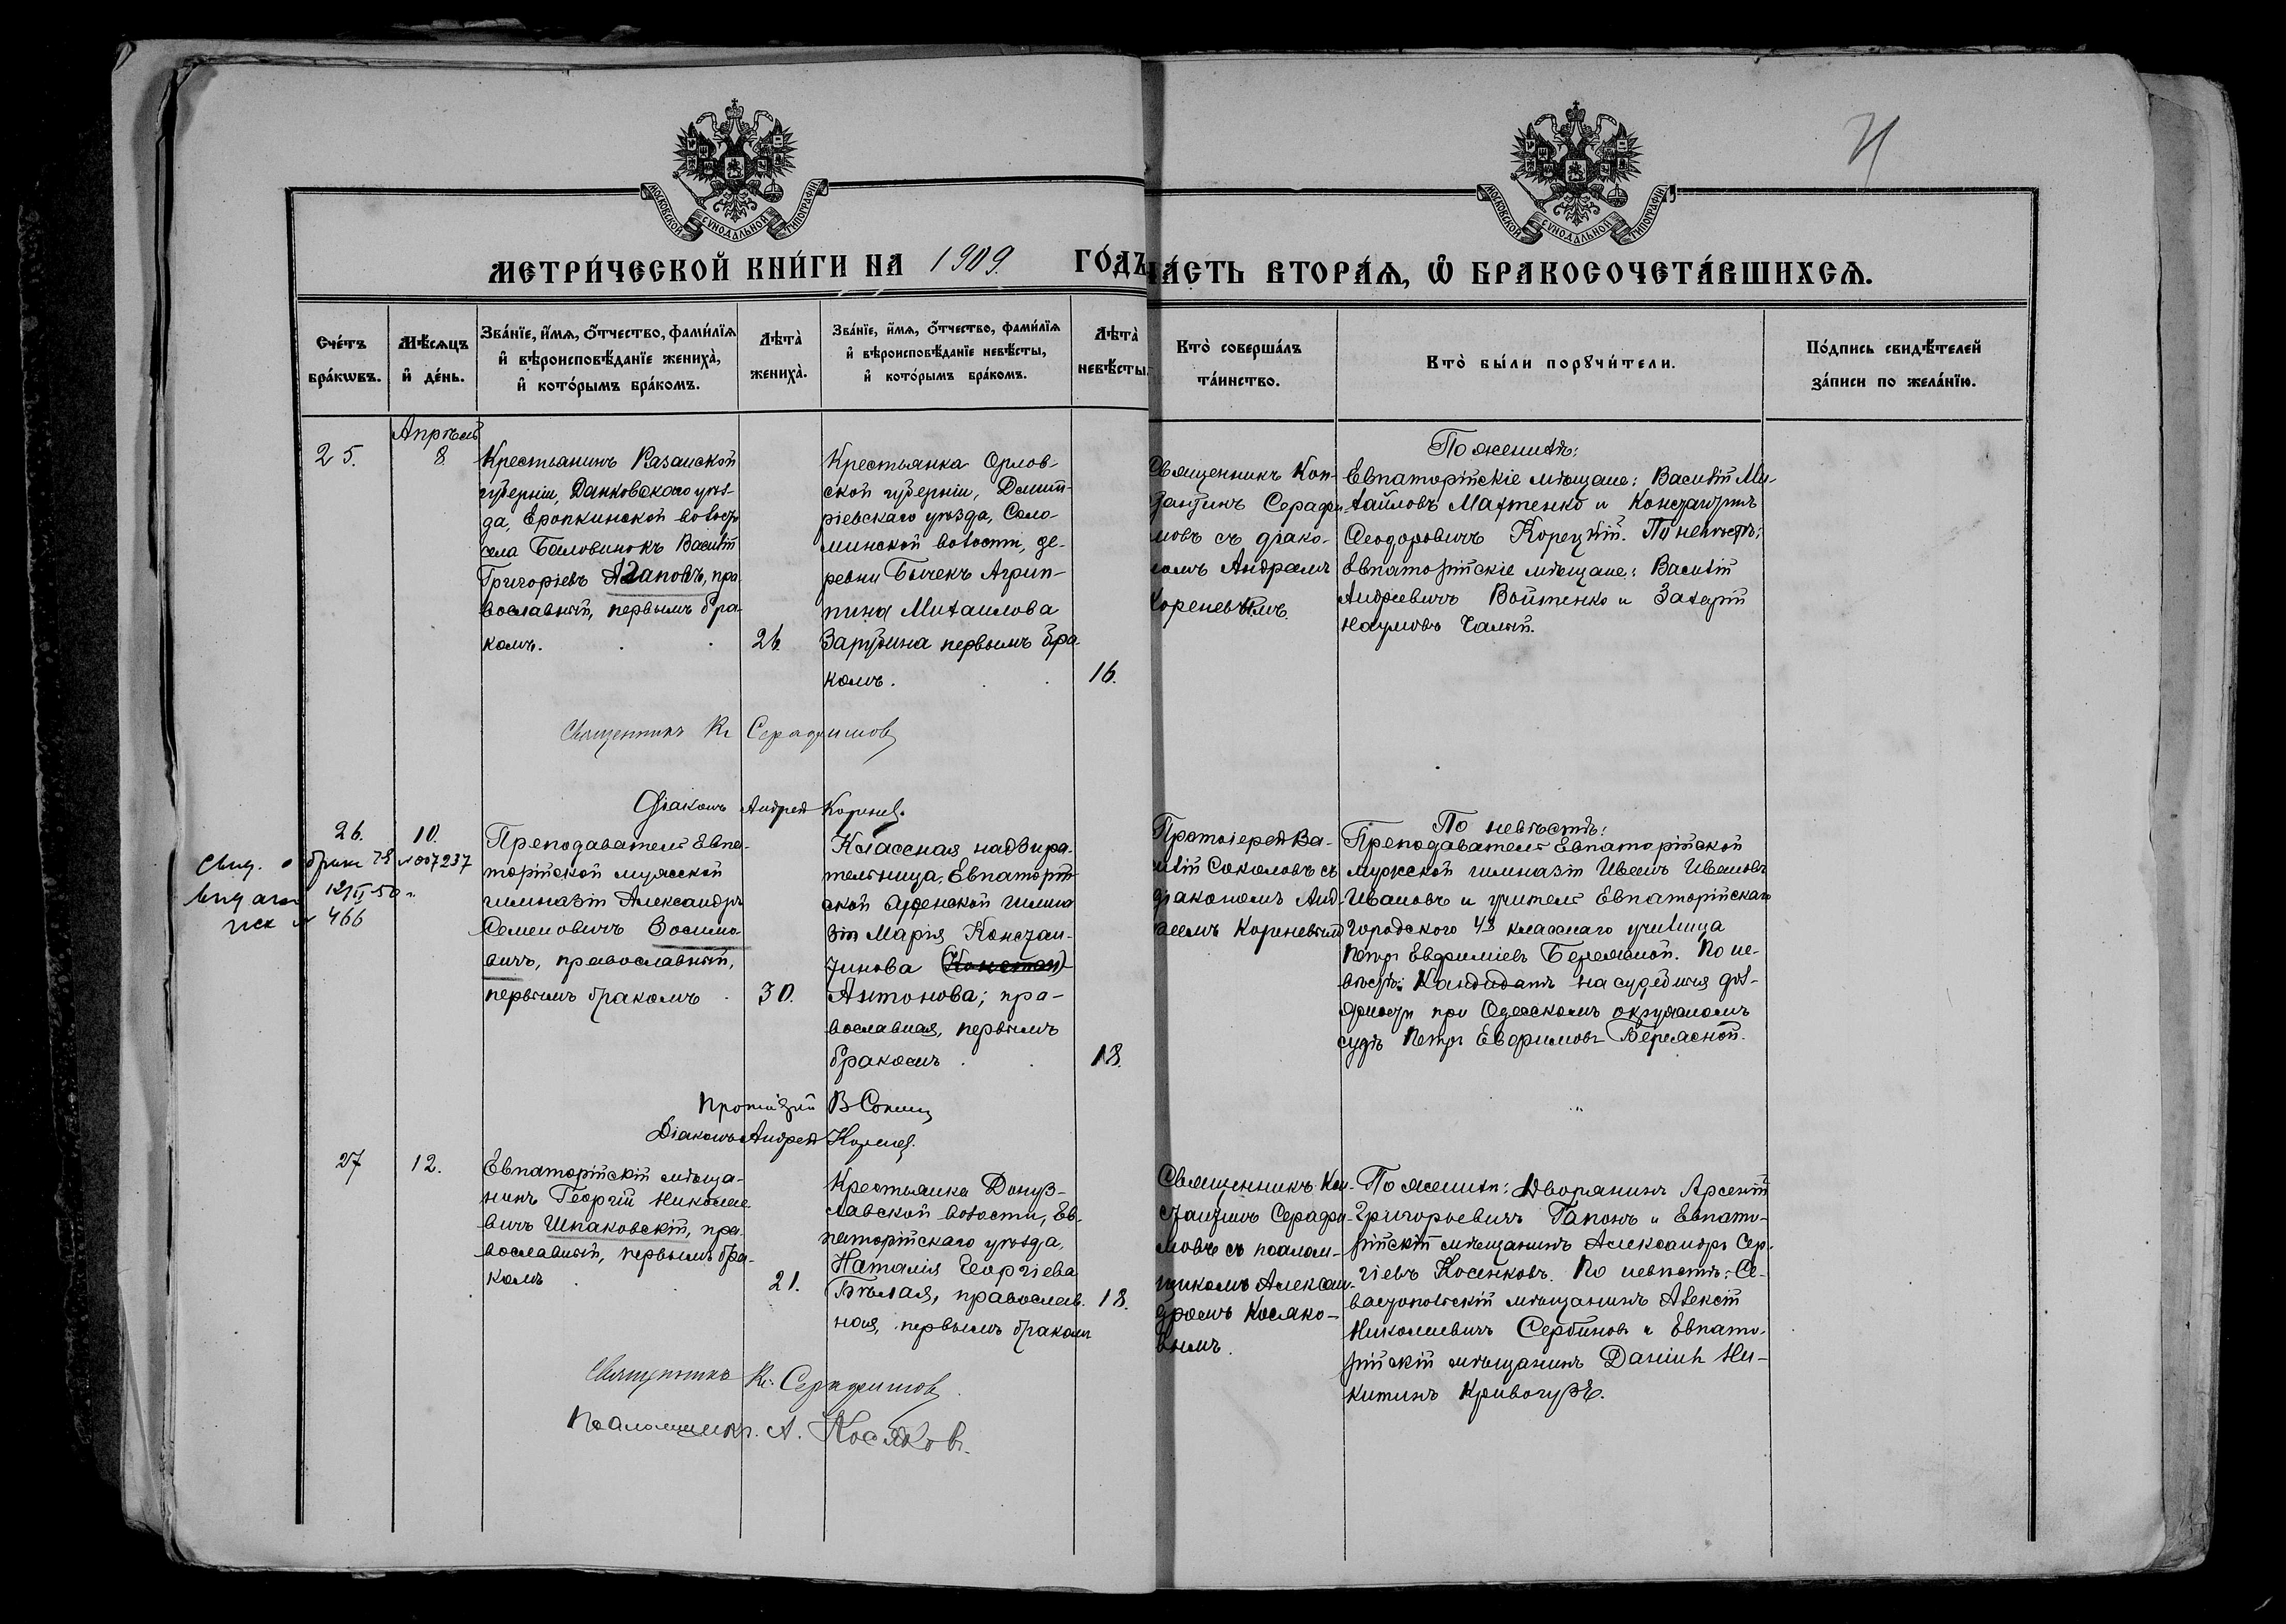 И
МОСКОВСКОЙ СѴНОДАЛЬНОЙ ТИПОГРАФІИ
МОСКОВСКОЙ СѴНОДАЛЬНОЙ ТИПОГРАФІИ
МЕТРИ́ЧЕСКОЙ КНИ́ГИ НА 1909. ГО́ДЪ
ЧА́СТЬ ВТОРА́Ѧ, Ѡ҆ БРАКОСОЧЕТА́ВШИХСѦ.
Сче́тъ
бра́кѡвъ.
Мѣ́сѧцъ
и҆ де́нь.
Зва́нїе, и҆́мѧ, ѻ҆́тчество, фами́лїѧ
и҆ вѣроисповѣ́данїе жениха̀,
и҆ кото́рымъ бра́комъ.
Лѣта̀
жениха̀.
Зва́нїе, и҆́мѧ, ѻ҆́тчество, фами́лїѧ
и҆ вѣроисповѣ́данїе невѣ́сты,
и҆ кото́рымъ бра́комъ.
Лѣта̀
невѣ́сты.
Кто̀ соверша́лъ
та́инство.
Кто̀ бы́ли порꙋчи́тели.
По́дпись свидѣ́телей
за́писи по жела́нїю.
25.
Апрѣль
8.
Крестьянинъ Рязанской
губерніи, Данковскаго уѣз-
да, Еропкинской волости
села Баловинокъ Василій
Григоріевъ Агаповъ, пра-
вославный, первымъ бра-
комъ.
26.
Крестьянка Орлов-
ской губерніи, Дмит-
ріевскаго уѣзда, Соло-
минской волости, де-
ревни Бычекъ Агрип-
пина Михаилова
Зарубина первымъ бра-
комъ.
16.
Священникъ Кон-
стантинъ Серафи-
мовъ съ діако-
номъ Андреемъ
Кореневымъ.
По женихѣ:
Евпаторійскіе мѣщане: Василій Ми-
хайловъ Махтенко и Константинъ
Ѳеодоровичъ Корецкій. По невѣстѣ:
Евпаторійскіе мѣщане: Василій
Андреевичъ Войтенко и Захарій
Наумовъ Чалый.
Священникъ К. Серафимовъ
Діаконъ Андрей Кореневъ.
26.
10.
Свид. о браке № 007237
12/II-50 г.
466
Преподаватель Евпа-
торійской мужской
гимназіи Александръ
Семеновичъ Зосимо-
вичъ, православный,
первымъ бракомъ
30.
Классная надзира-
тельница Евпаторій-
ской женской гимна-
зіи Марія Констан-
тинова (Констан)
Антонова; пра-
вославная, первымъ
бракомъ
18.
Протоіерей Ва-
силій Соколовъ съ
діакономъ Анд-
реемъ Кореневымъ
По невѣстѣ:
Преподаватель Евпаторійской
мужской гимназіи Иванъ Ивановъ
Ивановъ и учитель Евпаторійскаго
Городского 4х класснаго училища
Петръ Евфиміевъ Бережной. По не-
вѣстѣ: Кандидатъ на судебныя дол-
жности при Одесскомъ окружномъ
судѣ Петръ Евфимовъ Бережной.
Протоіерей В Соколовъ
Діаконъ Андрей Кореневъ.
27
12.
Евпаторійскій мѣща-
нинъ Георгій Николае-
вичъ Шпаковскій, пра-
вославный, первымъ бра-
комъ
21.
Крестьянка Донуз-
лавской волости, Ев-
паторійскаго уѣзда,
Наталія Георгіева
Бѣлая, православ-
ная, первымъ бракомъ
18.
Священникъ Кон-
стантинъ Серафи-
мовъ съ псалом-
щикомъ Алексан-
дромъ Косяко-
вымъ.
По женихѣ: Дворянинъ Арсеній
Григорьевичъ Гапонъ и Евпато-
рійскій мѣщанинъ Александръ Сер-
гіевъ Косенковъ. По невѣстѣ: Се-
вастопольскій мѣщанинъ Алексій
Николаевичъ Сербиновъ и Евпато-
рійскій мѣщанинъ Даніилъ Ни-
китинъ Кривогузъ.
Священникъ К. Серафимовъ
Псаломщикъ. А. Косяковъ.